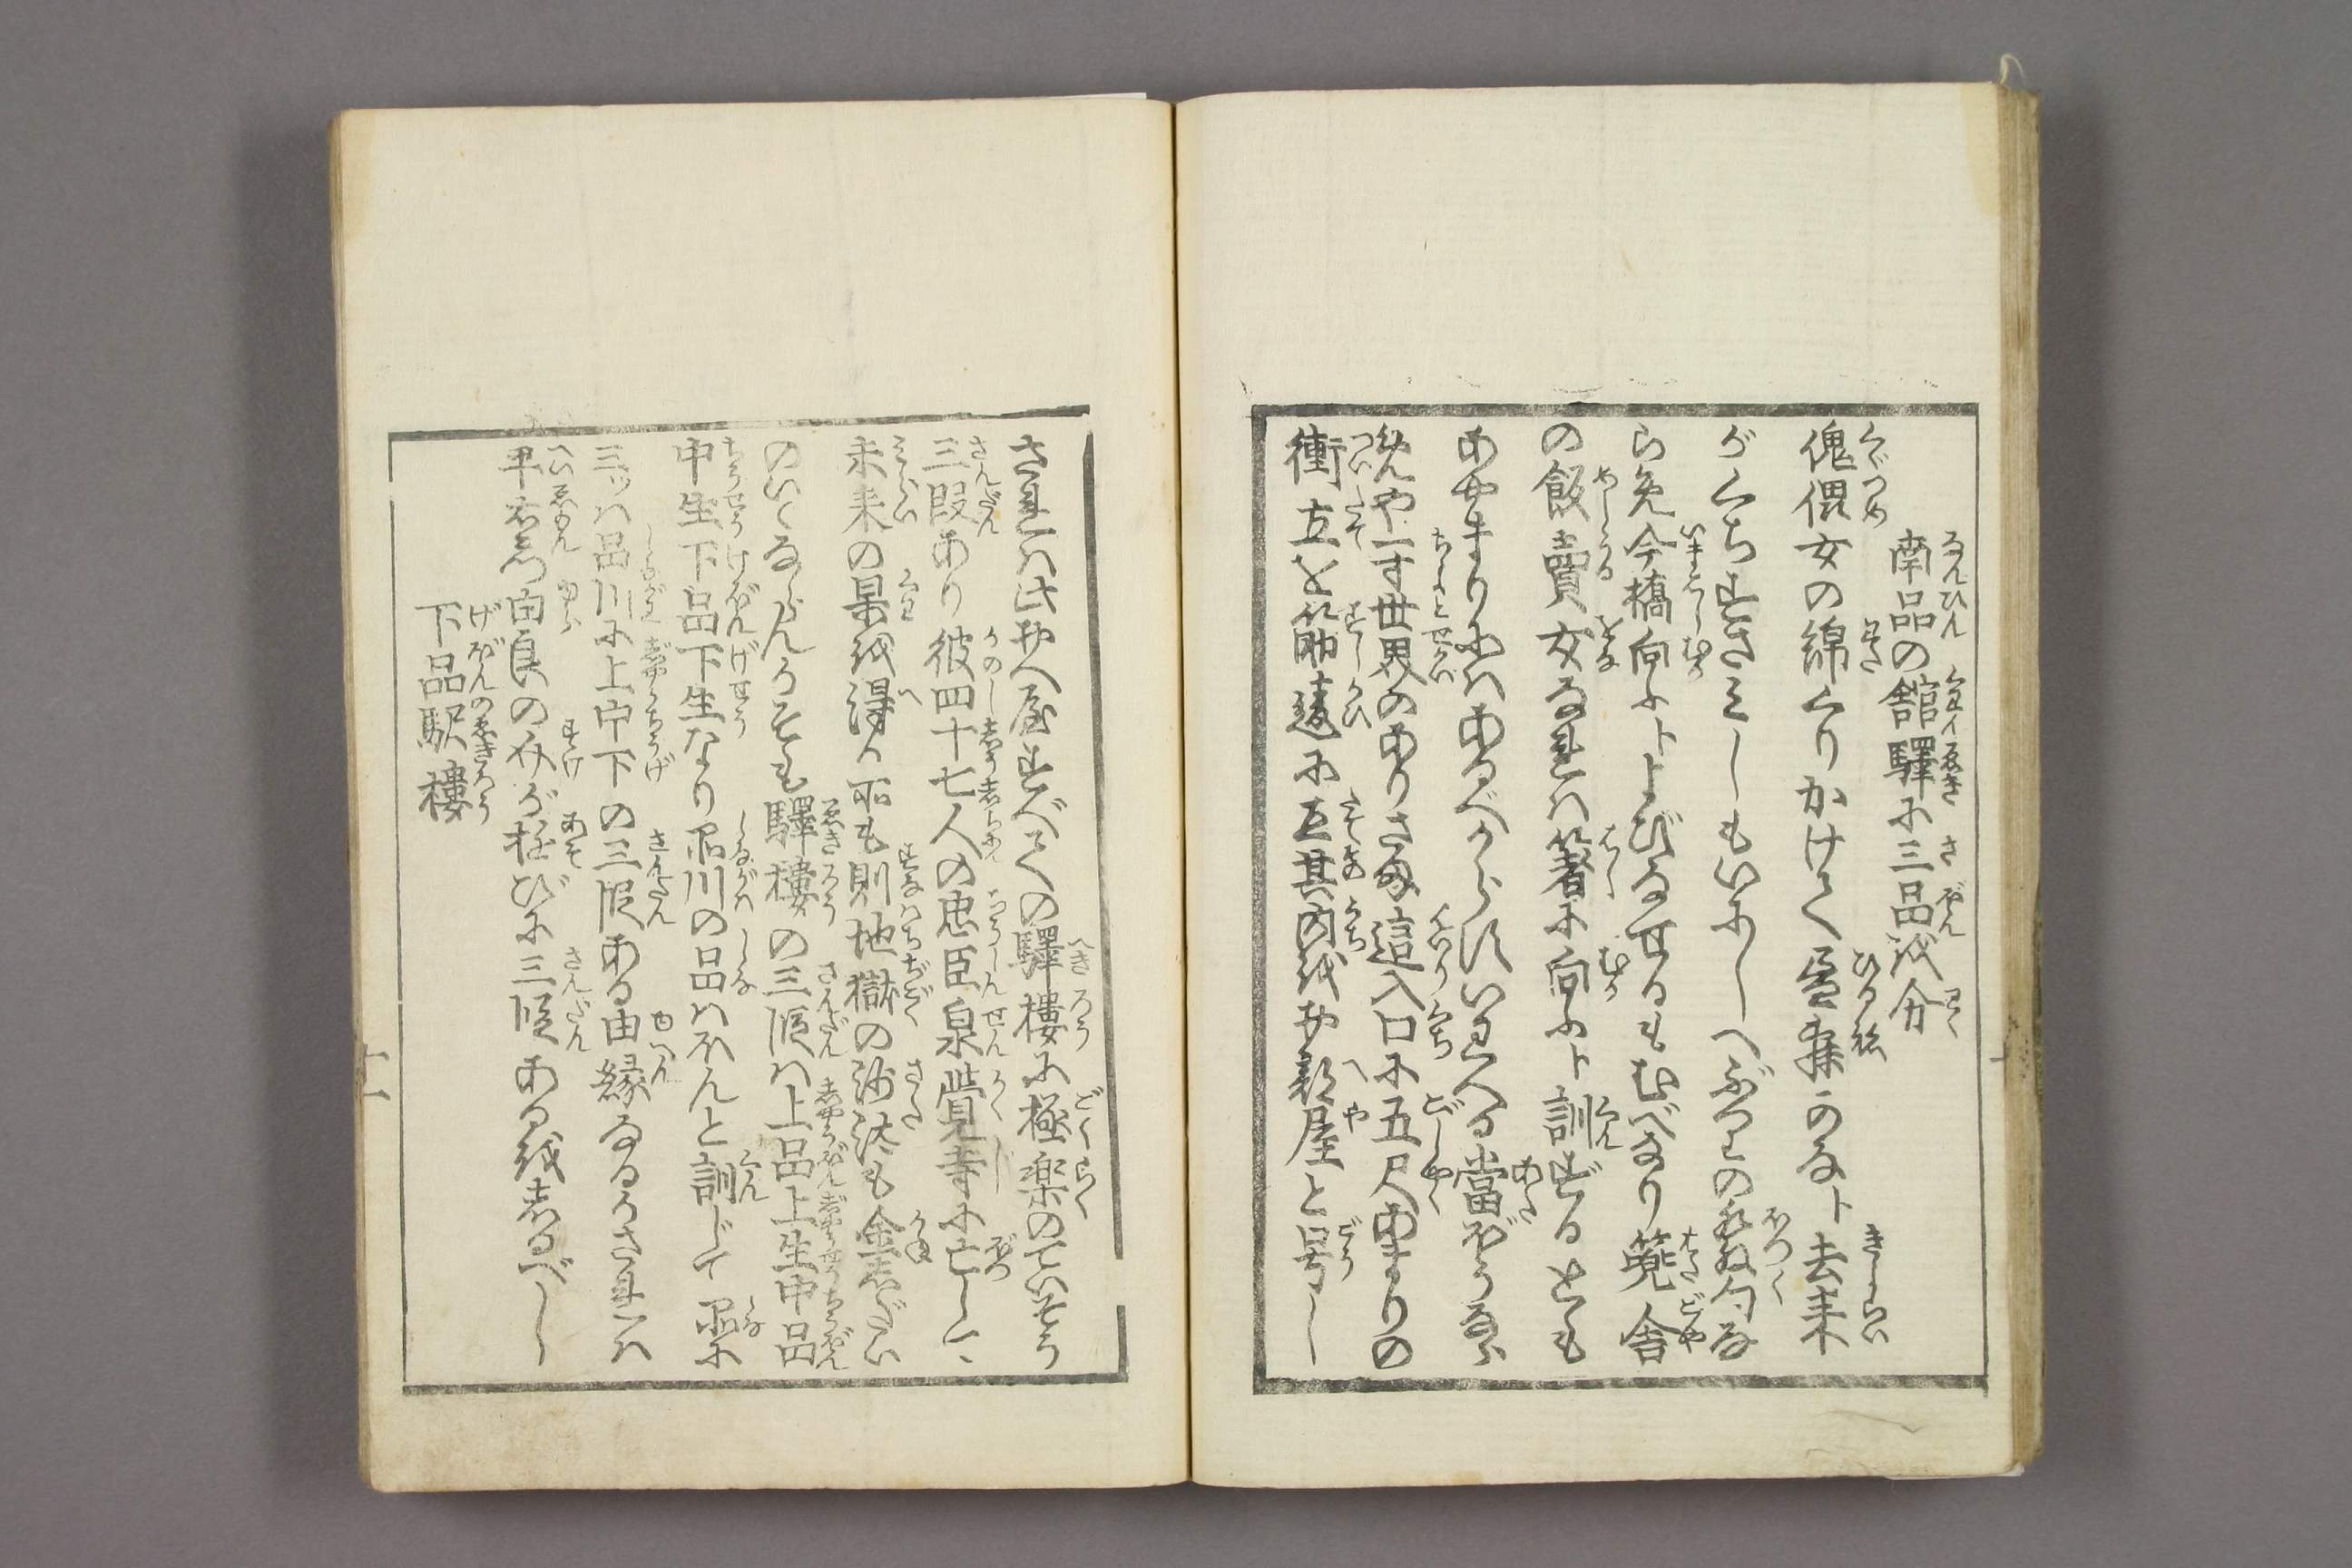 南品の舘驛に三品を分
傀儡女の綿くりかけて昼寐かなト去来
がくちすさみしもいにしへぶりの発句な
ら免今橋向ふトよびなせるもむべなり籠舎
の飯賣女なれは箸に向ふト訓ずるとも
あやまりにはあるべからずいわへる當ぼうなら
ねんや一寸世界のありさま這入口に五尺あまりの
衝立を筋違に立其内をお部屋と号し
されは此お へ屋すべての驛樓に極楽のていそう
三段あり彼四十七人の忠臣泉岳寺に亡しハ
未来の果を得ル所も則地獄の沙汰も金しだい
のいくならんかそも驛樓の三段は上品上生中品
中生下品下生なり品川の品はほんと訓じて品に
三ッは品川に上中下の三段ある由縁なるかされは
平右衛門由良の介が遊びに三段あるをしるべし
下品駅樓
十一